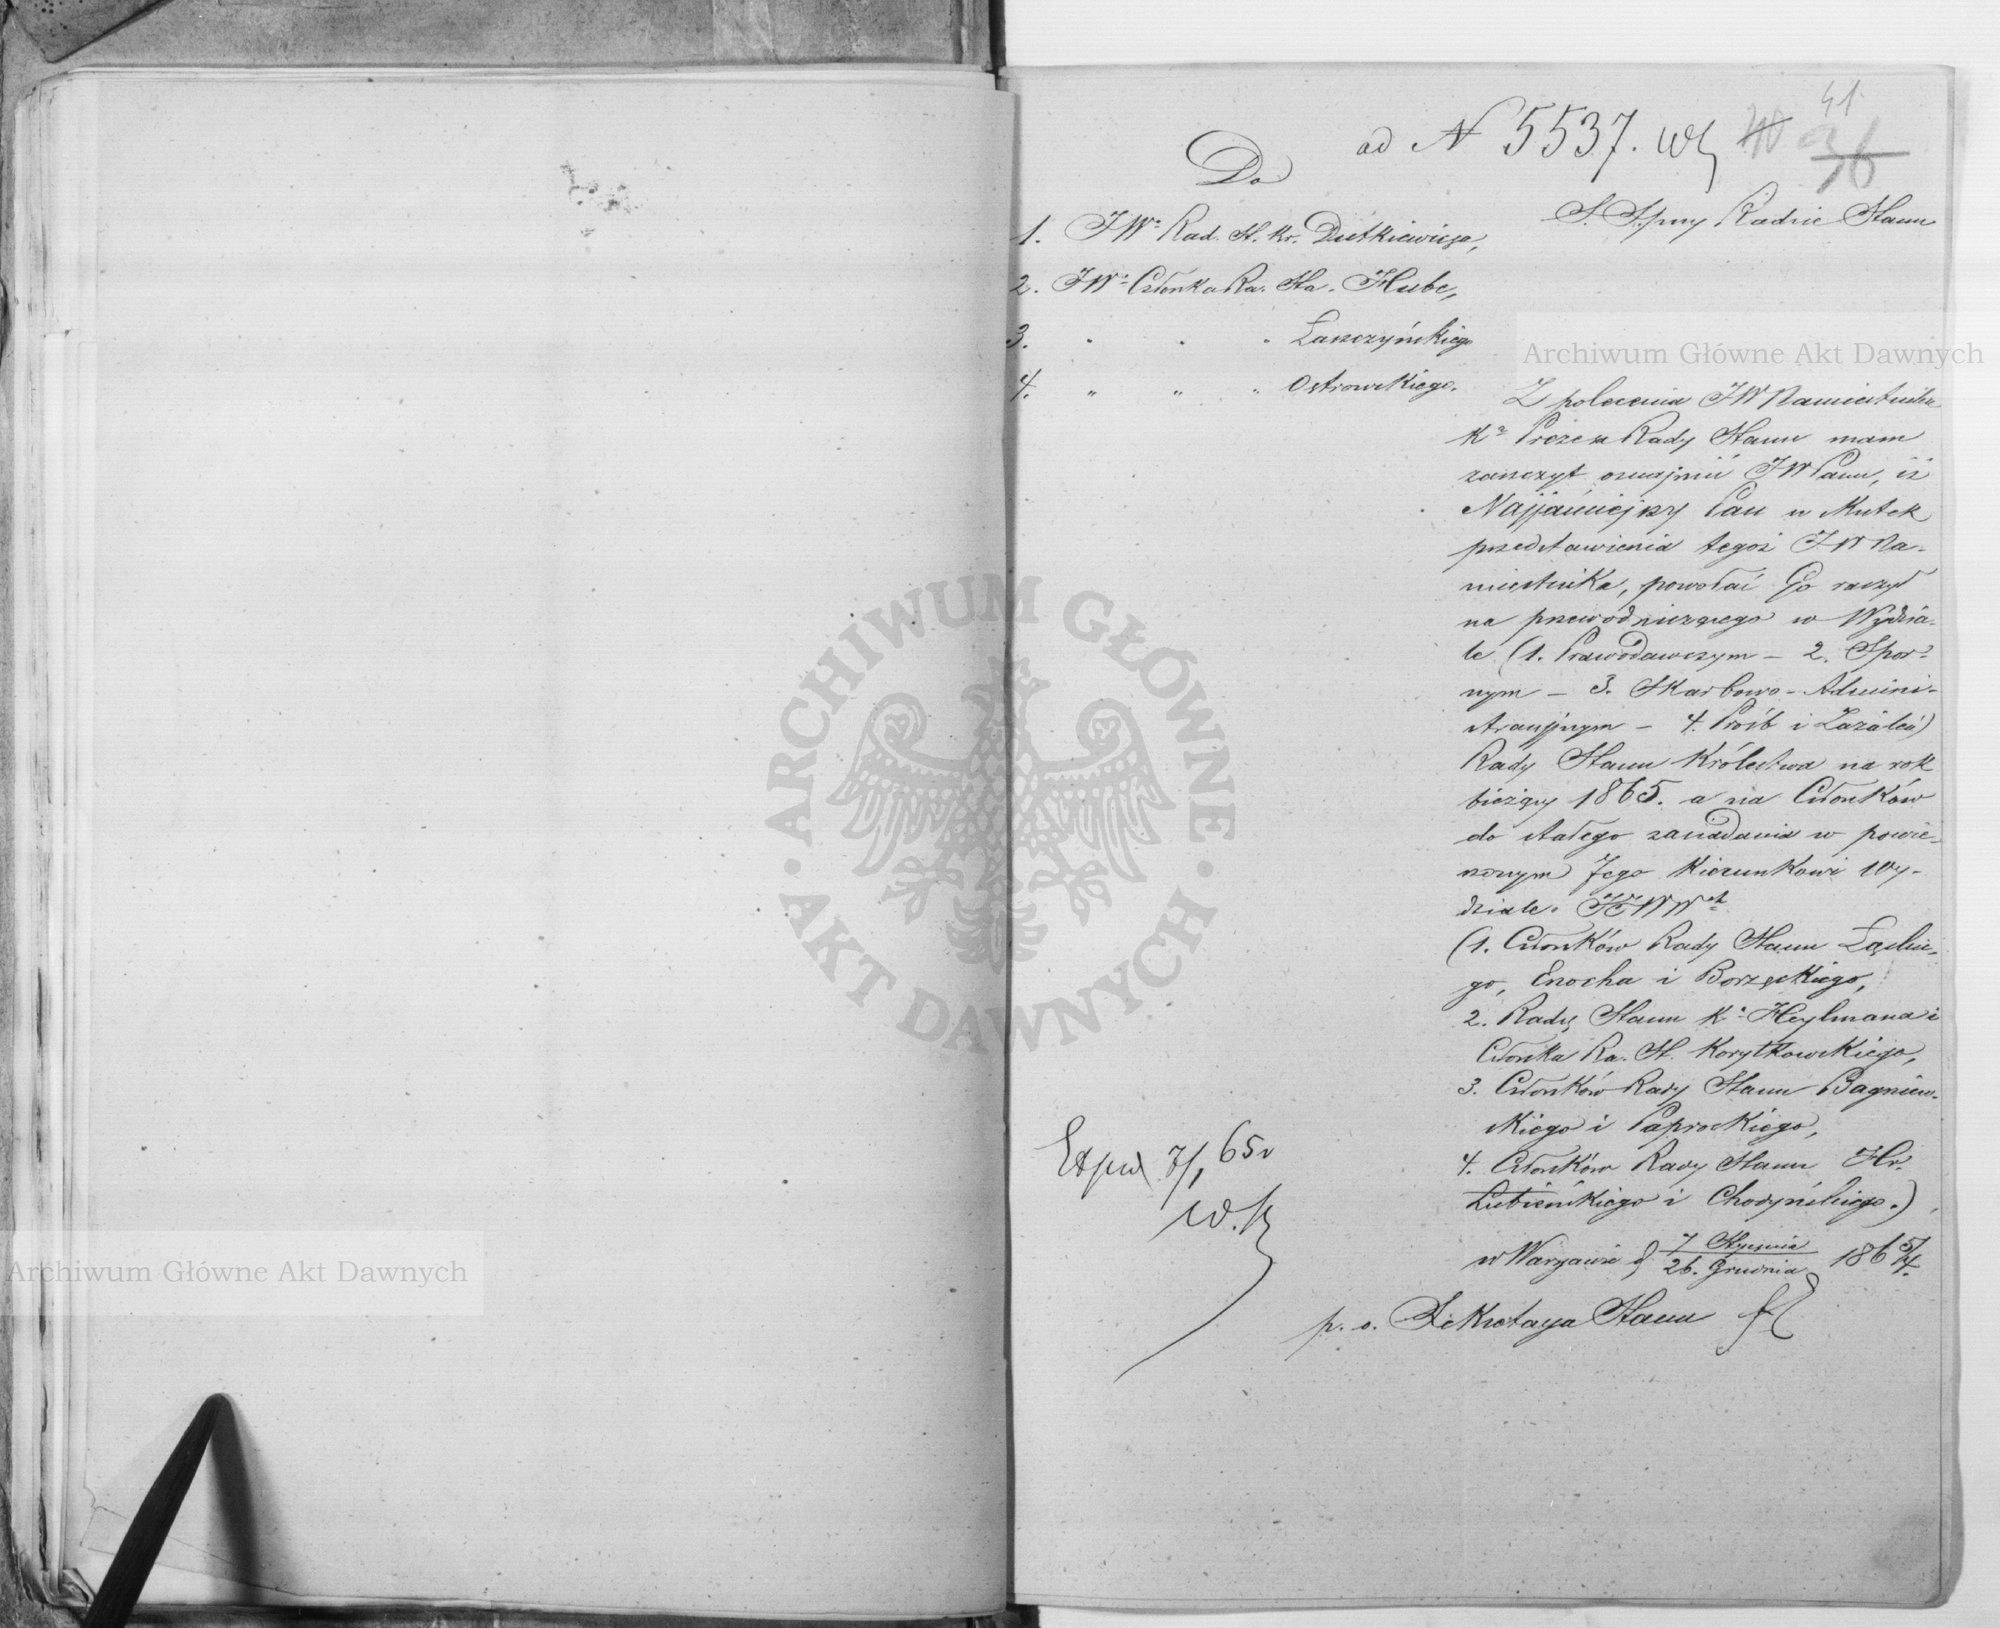 41
ad N 5537. 40 36
Do
S. Radzie Stanu
1. JW. Rad. St. Kr. Dutkiewicza,
2. JW. Członka Ra. Sta. Hube,
3. " " " Łaszczyńskiego
4. " " " Ostrowskiego.
Z polecenia JW Namiestnika
Kr. Prezesa Rady Stanu mam
zaszczyt oznajmić JWPanu, iż
Najjaśniejszy Pan w skutek
przedstawienia tegoż JW Na-
miestnika, powołać Go raczył
na przewodniczącego w Wydzia-
le (1. Prawodawczym – 2. Spor-
nym – 3. Skarbowo-Admini-
stracyjnym – 4. Próśb i Zażaleń)
Rady Stanu Królestwa na rok
bieżący 1865. a na Członków
do stałego zasiadania w powie-
rzonym Jego kierunkowi Wy-
dziale. JJWWch
(1. Członków Rady Stanu Łęskie-
go, Enocha i Borzęckiego,
2. Radcę Stanu Kr. Heylmana i
Członka Ra. St. Korytkowskiego,
3. Członków Rady Stanu Bagniew-
skiego i Paprockiego,
4. Członków Rady Stanu Hr.
Łubieńskiego i Chodyńskiego.)
Exped 7/1 65 r
w Warszawie d. 7 Stycznia / 26. Grudnia 1865/4.
p. o. Sekretarza Stanu
Archiwum Główne Akt Dawnych
Archiwum Główne Akt Dawnych
· ARCHIWUM GŁÓWNE · AKT DAWNYCH